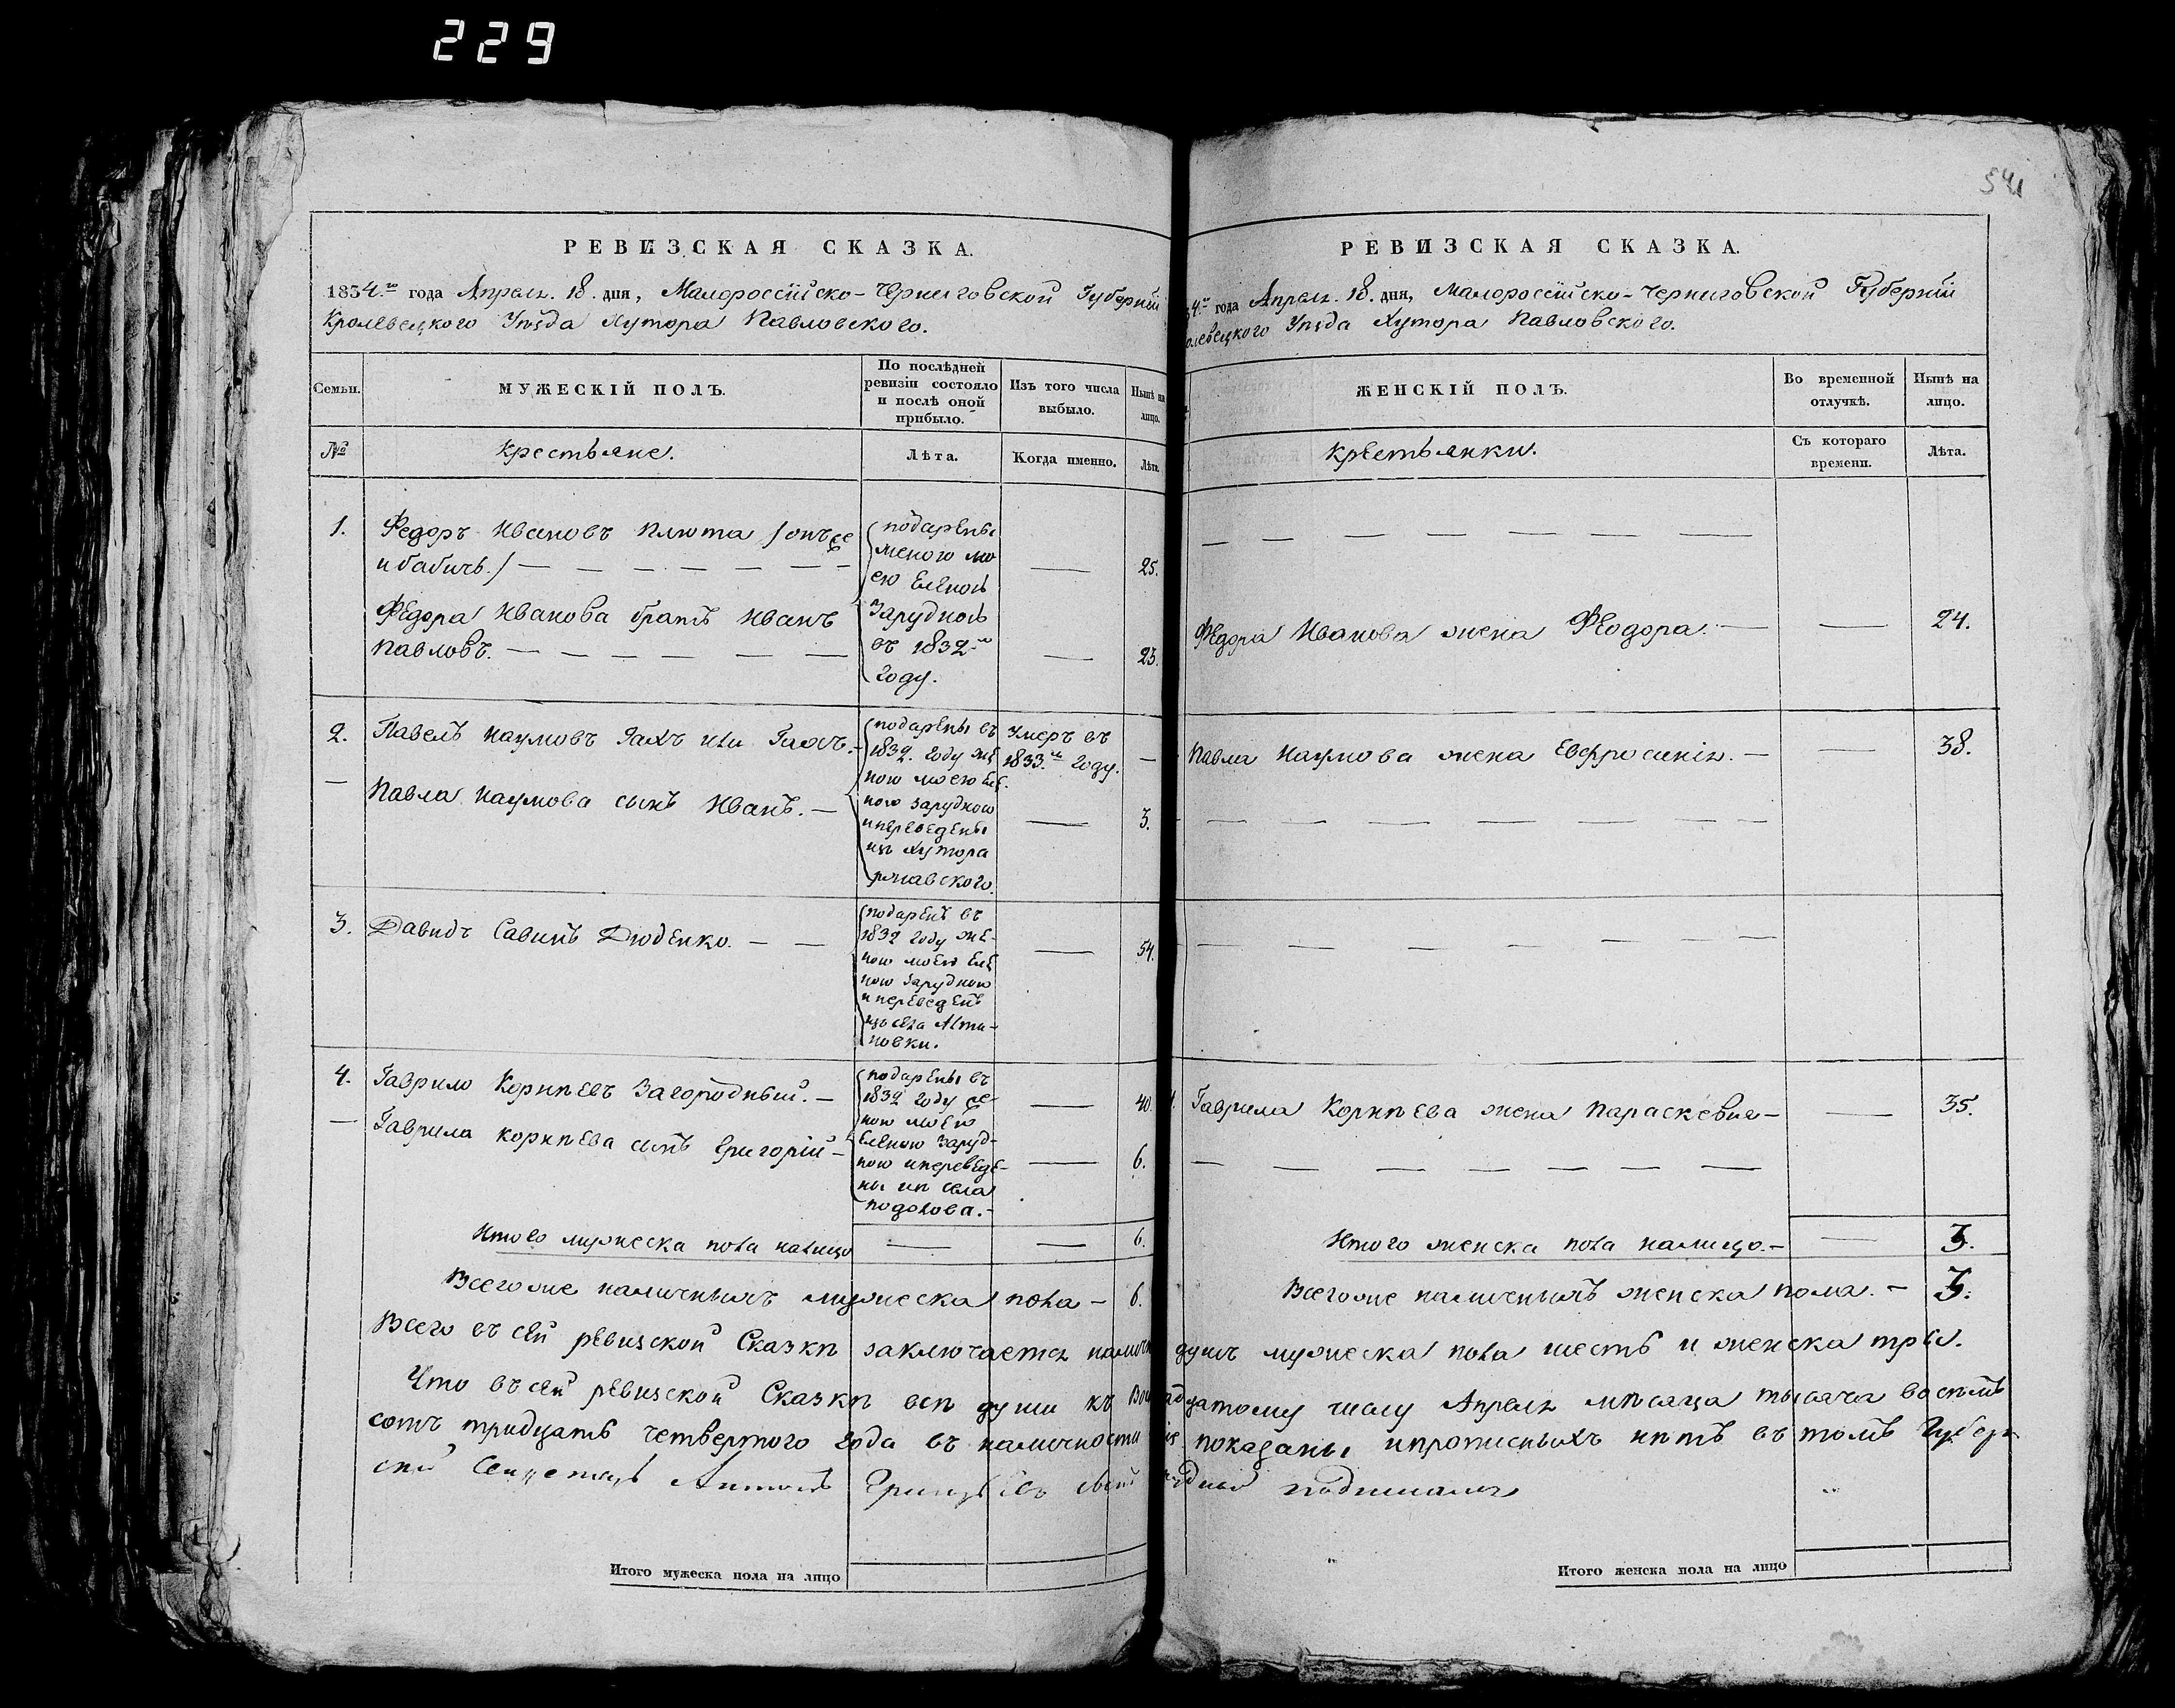 229
541
РЕВИЗСКАЯ СКАЗКА.
1834.го года Апреля. 18. дня, Малороссійско-Черниговской Губерніи
Кролевецкого Уѣзда Хутора Павловского.
Семьи.
МУЖЕСКІЙ ПОЛЪ.
По послѣдней
ревизіи состояло
и послѣ оной
прибыло.
Изъ того числа
выбыло.
Нынѣ на
лицо.
№
Крестьяне.
Лѣта.
Когда именно.
Лѣта.
1. Федоръ Ивановъ Плюта /онъже
и бабичь./
25.
Федора Иванова братъ Иванъ
Павловъ.
23.
подарены
женою мо
ею Еленою
Зарудною
въ 1832м
году.
2. Павелъ Наумовъ Гахъ или
Павла Наумова сынъ Иванъ.
3.
подарены въ
1832. году же
ною моею Еле
ною Зарудною
и переведены
изъ Хутора
Умеръ въ
1833.м году.
3. Давидъ Савинъ Дюденко.
54.
подаренъ въ
1832 году же-
ною моею Еле
ною Зарудною
и переведенъ
изъ села Алти-
новки.
4. Гаврило Корнѣевъ Загородный.
40.
Гаврила Корнѣева сынъ Григорій
6.
подарены въ
1832 году же-
ною моею
Еленою Заруд-
ною и переведе-
ны изъ села
Подолова.
Итого мужеска пола налицо
6.
Всегоже наличныхъ мужеска пола - 6.
РЕВИЗСКАЯ СКАЗКА.
4.го года Апреля. 18. дня, Малороссійско-Черниговской Губерніи
олевецкого Уѣзда Хутора Павловского.
ЖЕНСКІЙ ПОЛЪ.
Во временной
отлучкѣ.
Нынѣ на
лицо.
Крестьянки.
Съ котораго
времени.
Лѣта.
Федора Иванова жена Феодора. 24.
Павла Наумова жена Евфросинія. 38.
Гаврила Корнѣева жена Параскевия 35.
Итого женска пола налицо. 3.
Всегоже наличныхъ женска пола. 3.
Всего въ сей ревизской Сказкѣ заключается налич душъ мужеска пола шесть и женска три.
Что въ сей ревизской Сказкѣ всѣ души къ Вос надцатому числу Апреля мѣсяца тысяча восемъ
сотъ тридцать четвертого года въ наличности показаны и прописныхъ нѣтъ въ томъ Губерн
ской Секретарь Антонъ подписалъ
Итого мужеска пола на лицо
Итого женска пола на лицо